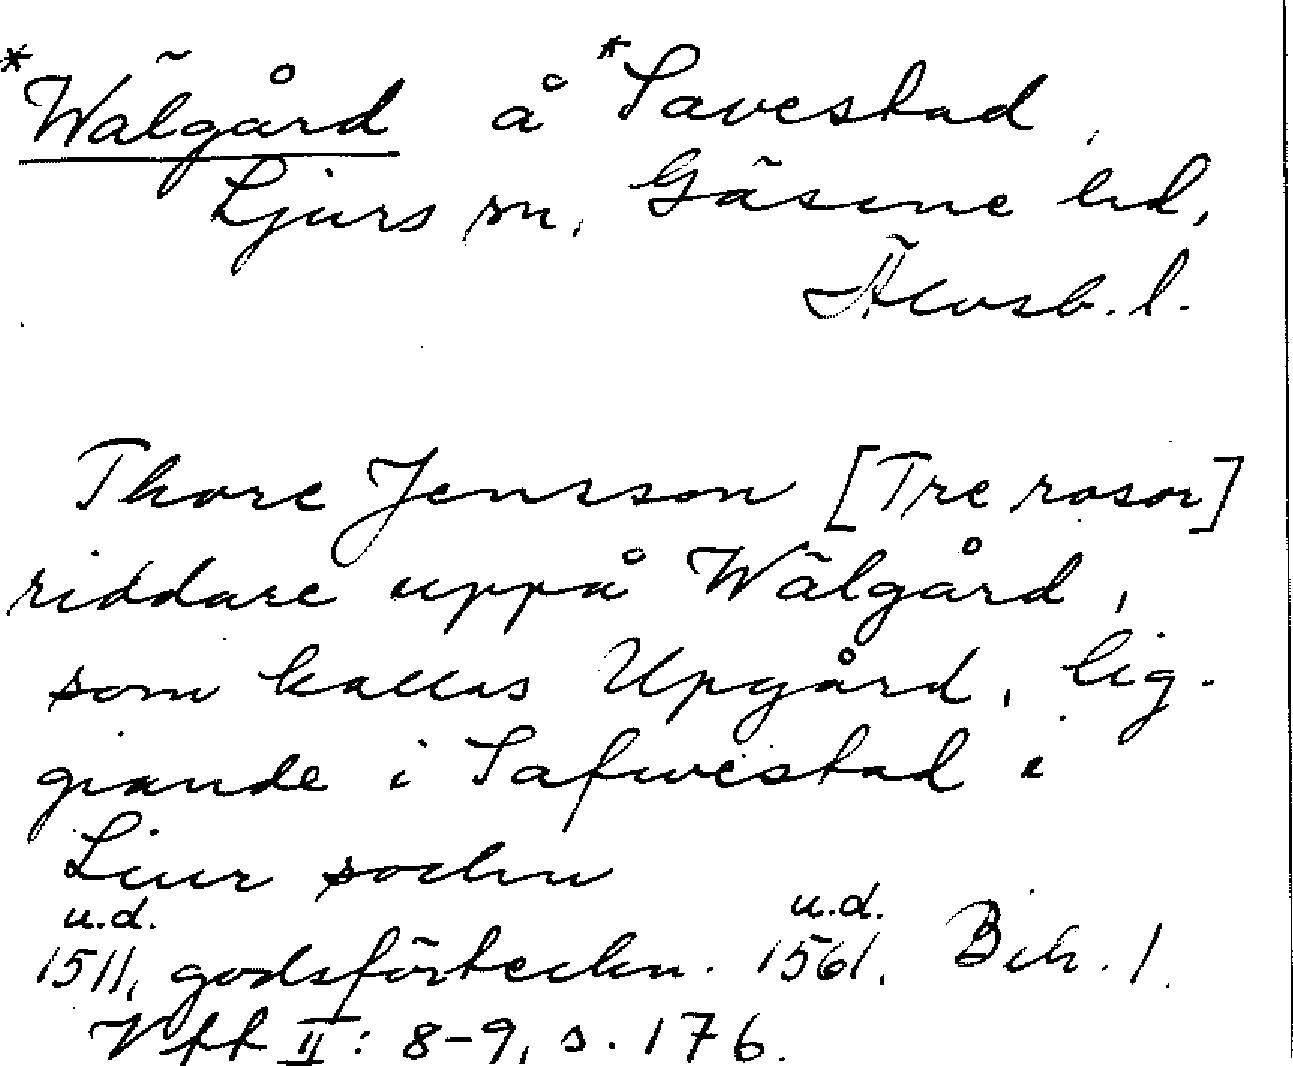 *Wälgård å *Savestad,
Ljurs sn, Gäsene hd,
Älvsb. l.
Thore Jensson [Tre rosor]
riddare uppå Wälgård,
som kallas Upgård, lig-
giande i Safwestad i
Liur sochn
u.d. u.d.
1511, godsförteckn. 1561. Bih. 1.
Vff II: 8-9, s. 176.